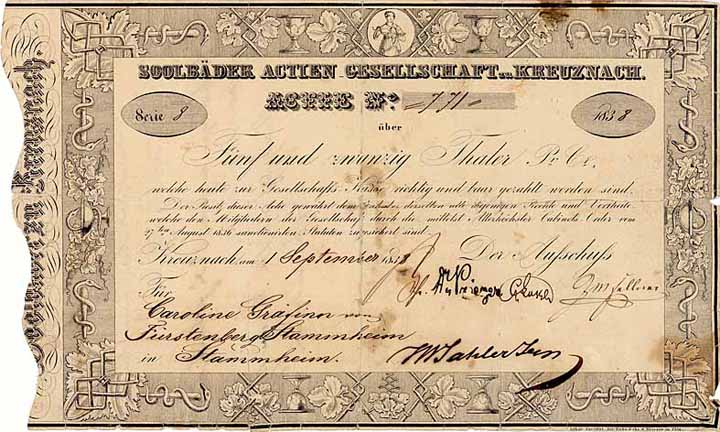 SOOLBÄDER ACTIEN GESELLSCHAFT zu KREUZNACH.
ACTIE No. 771
Serie 8
1838
über
Fünf und zwanzig Thaler Pr. Ct.
welche heute zur Gesellschafts Kasse richtig und baar gezahlt worden sind.
Der Besitz dieser Actie gewährt dem Inhaber derselben alle diejenigen Rechte und Vortheile
welche den Mitgliedern der Gesellschaft durch die mittelst Allerhöchster Cabinets Order vom
27ten August 1836 sanctionirten Statuten zugesichert sind.
Kreuznach am 1 September 1838
Der Ausschuss
Für
Caroline Gräfinn von
Fürstenberg Stammheim
in Stammheim.